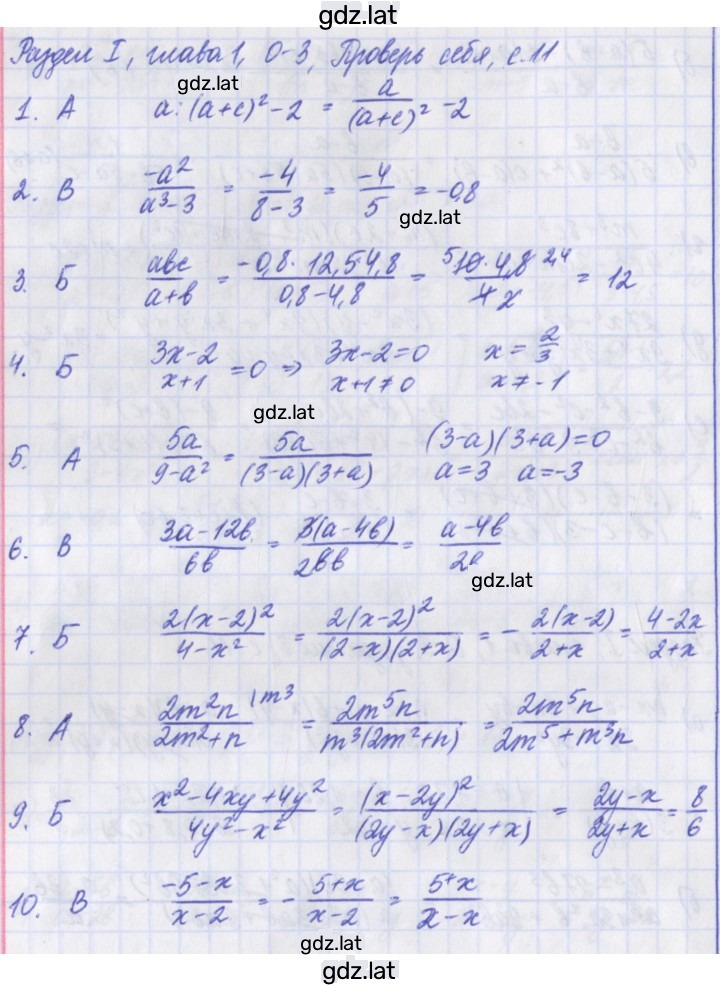 gdz.lat
Раздел I, глава 1, 0-3, Проверь себя, с.11
gdz.lat
1. А a:(a+c)²-2 = a/(a+c)² -2
2. В -a²/a³-3 = -4/8-3 = -4/5 = -0,8
gdz.lat
3. Б abc/a+b = -0,8·12,5·4,8/0,8-4,8 = 5 10·4,8 2,4/4 2 = 12
4. Б 3x-2/x+1 = 0 => 3x-2=0 x=2/3
x+1≠0 x≠-1
gdz.lat
5. А 5a/9-a² = 5a/(3-a)(3+a) (3-a)(3+a)=0
a=3 a=-3
6. В 3a-12b/6b = 3(a-4b)/2 6b = a-4b/2
gdz.lat
7. Б 2(x-2)²/4-x² = 2(x-2)²/(2-x)(2+x) = - 2(x-2)/2+x = 4-2x/2+x
8. А 2m²n/2m²+n |m³ = 2m⁵n/m³(2m²+n) = 2m⁵n/2m⁵+m³n
9. Б x²-4xy+4y²/4y²-x² = (x-2y)²/(2y-x)(2y+x) = 2y-x/2y+x = 8/6
10. В -5-x/x-2 = - 5+x/x-2 = 5+x/2-x
gdz.lat
gdz.lat